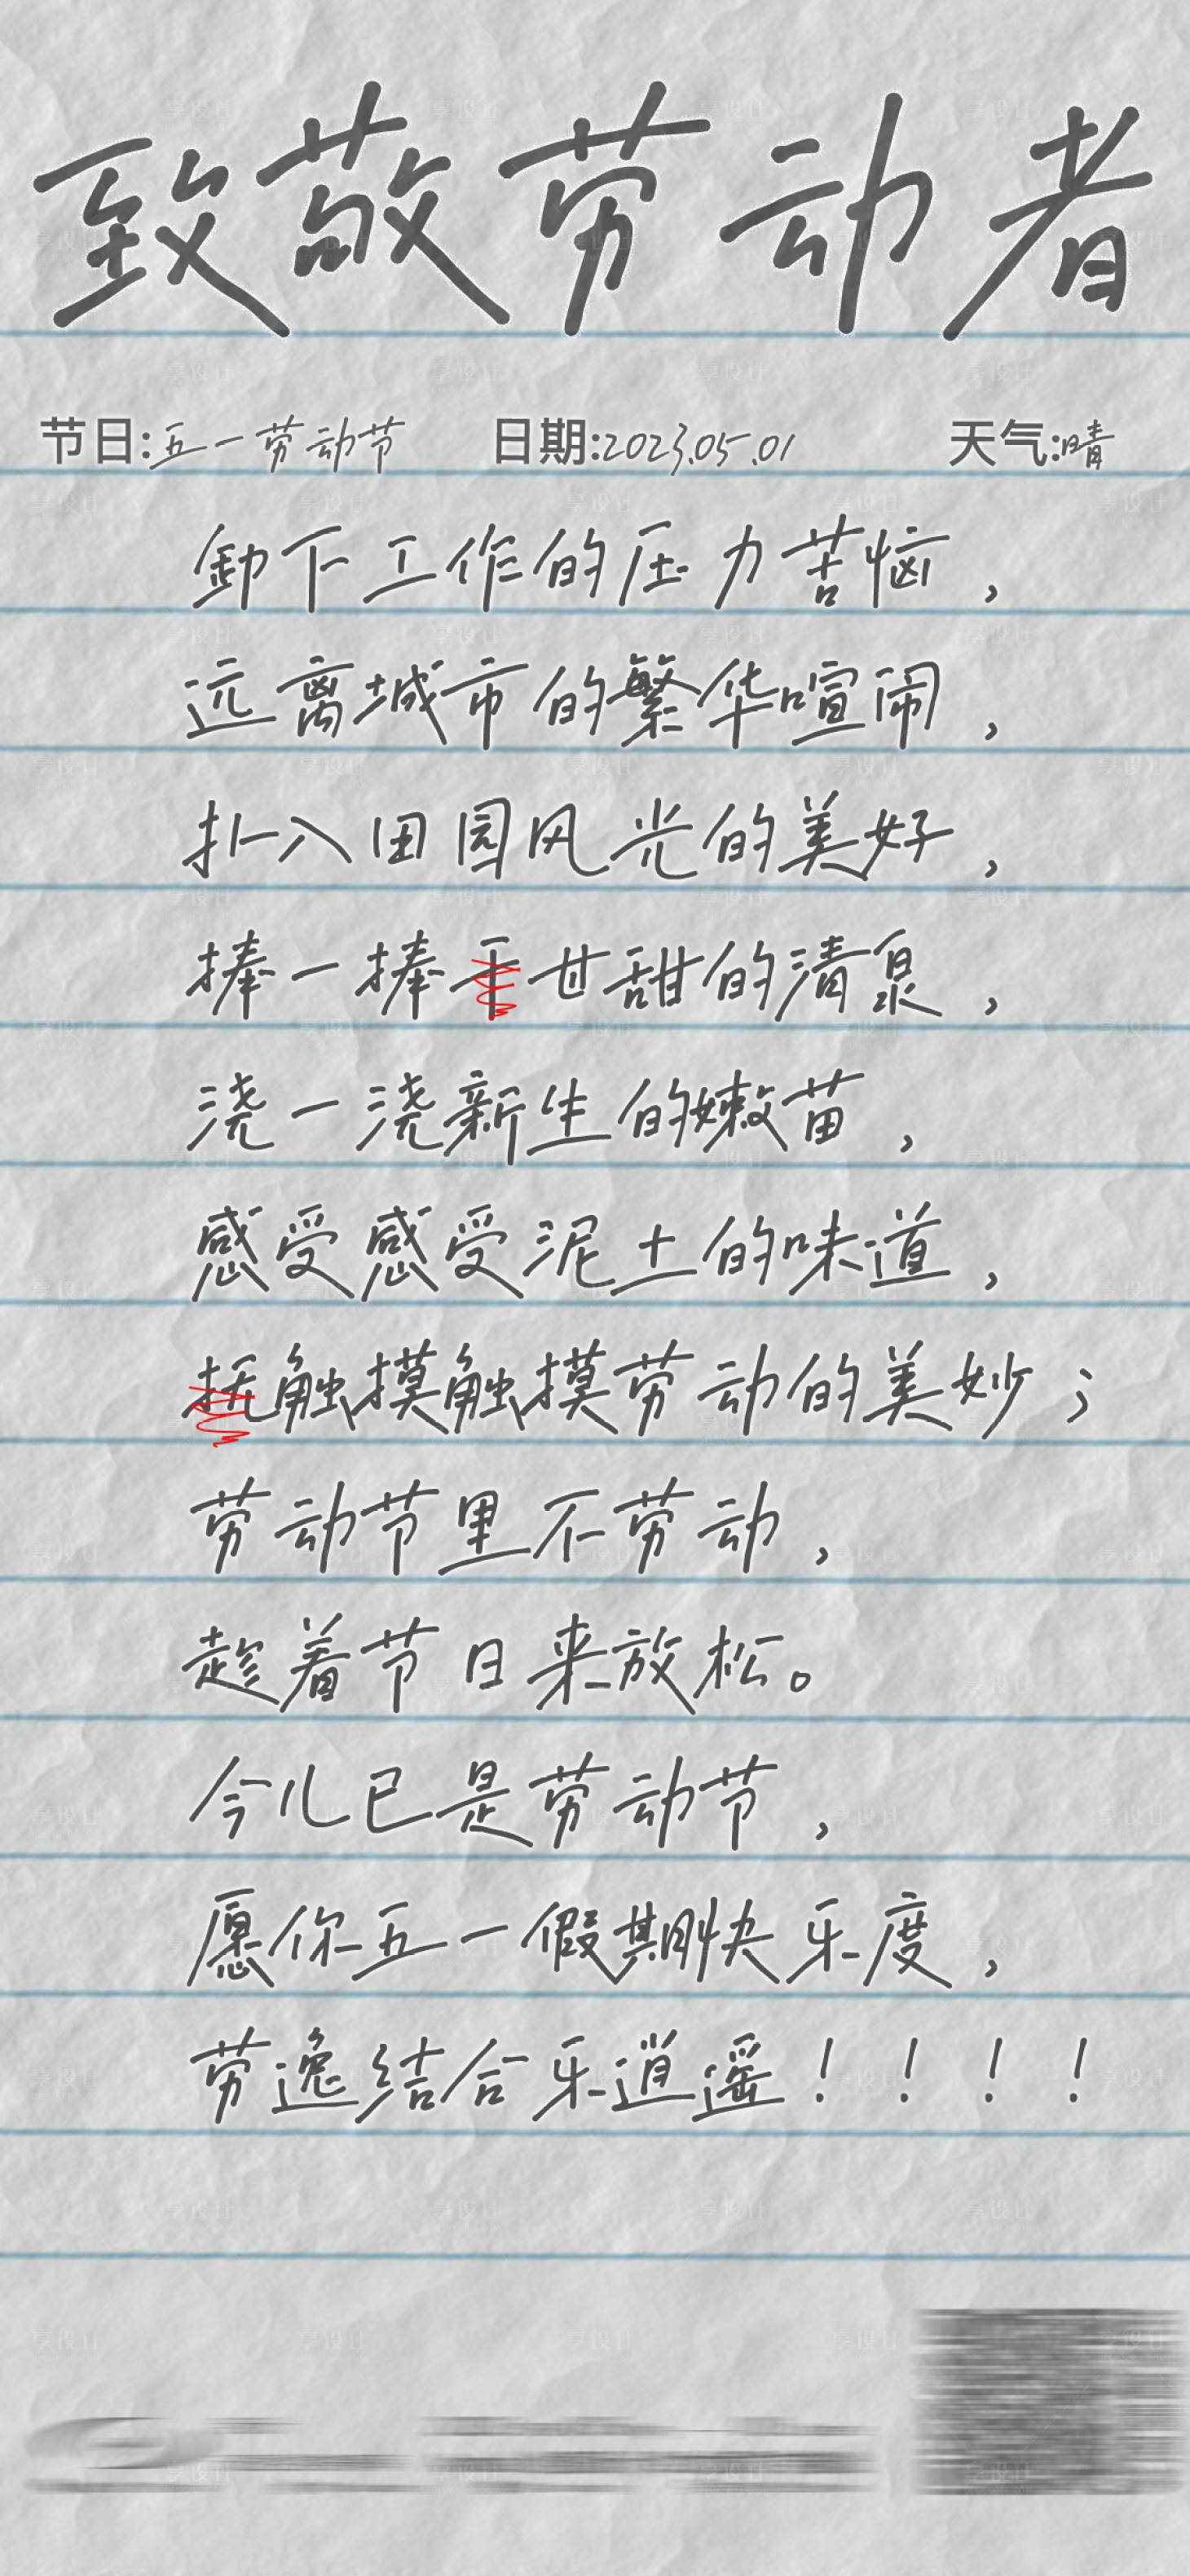 致敬劳动者
节日:五一劳动节 日期:2023.05.01 天气:晴
卸下工作的压力苦恼，
远离城市的繁华喧闹，
扑入田园风光的美好，
捧一捧干甘甜的清泉，
浇一浇新生的嫩苗，
感受感受泥土的味道，
抚触摸触摸劳动的美妙；
劳动节里不劳动，
趁着节日来放松。
今儿已是劳动节，
愿你五一假期快乐度，
劳逸结合乐逍遥！！！！
享设计